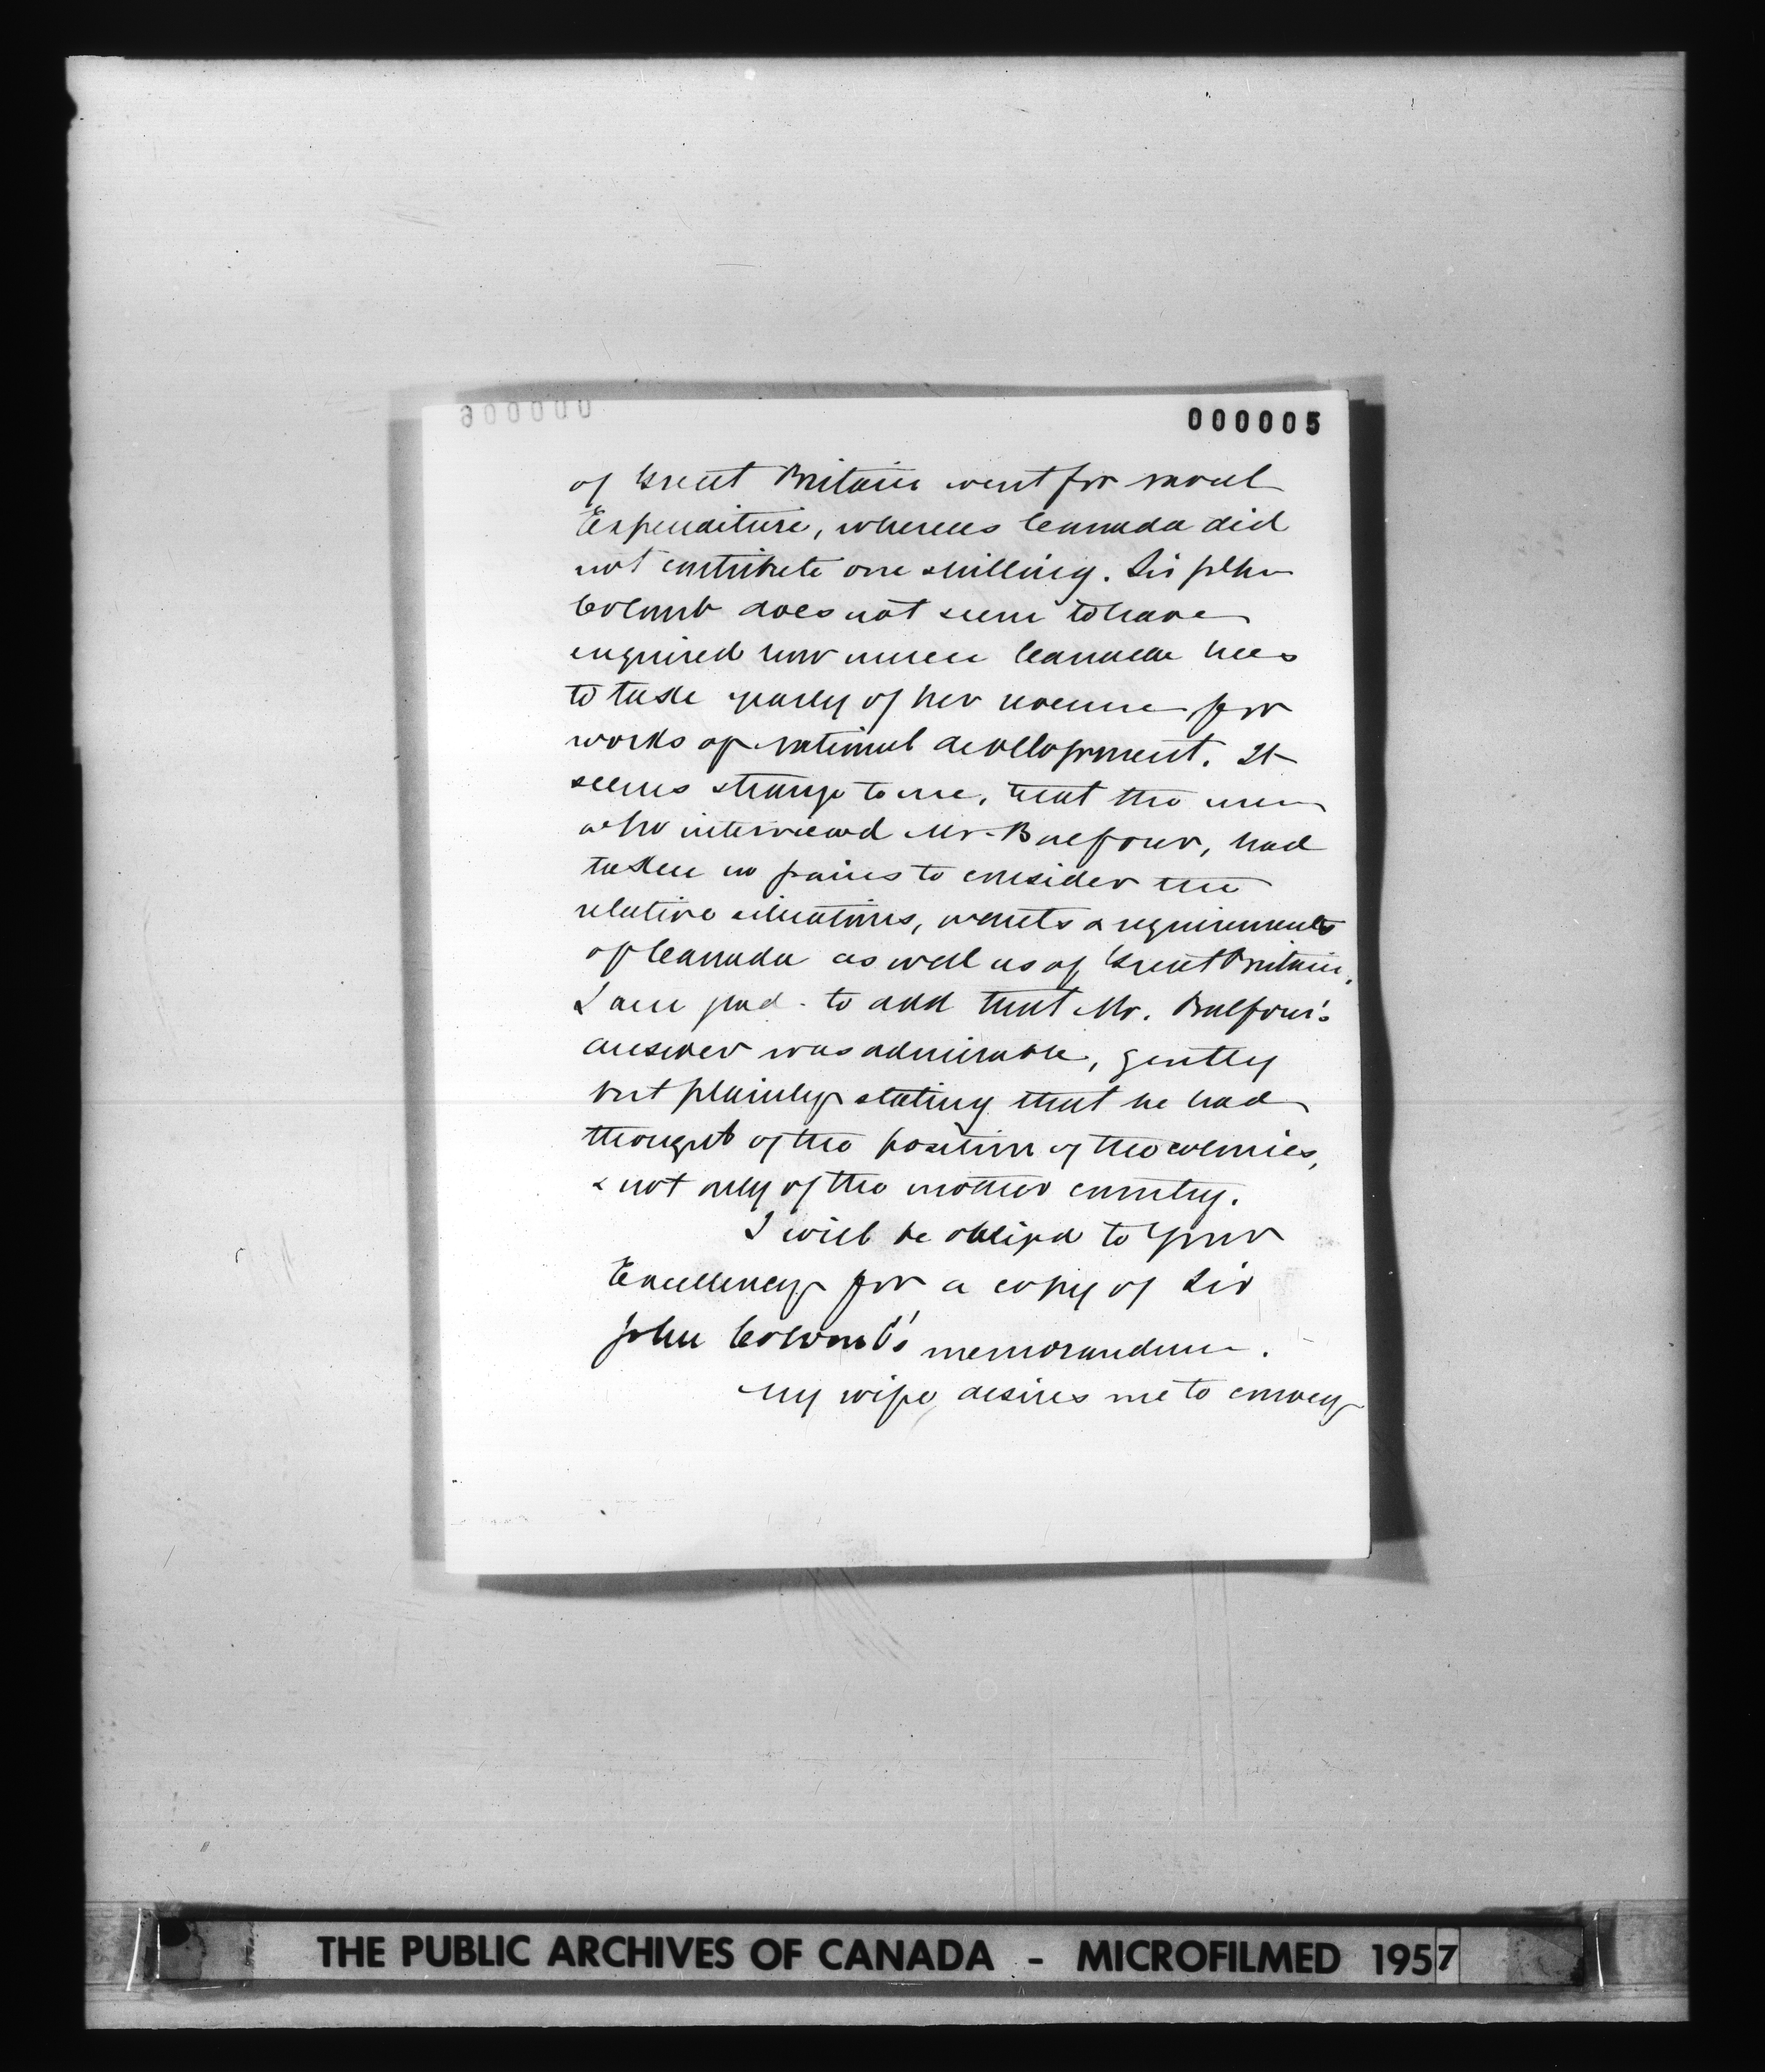 000005
of Great Britain went for naval
Expenditure, whereas Canada did
not contribute one shilling. Sir John
Colomb does not seem to have
enquired how much Canada has
to take yearly of her revenue for
works of national development. It
seems strange to me, that the men
who interviewed Mr. Balfour, had
taken no pains to consider the
relative situations, wants & requirements
of Canada as well as of Great Britain.
I am glad to add that Mr. Balfour's
answer was admirable, gently
but plainly stating that he had
thought of the position of the colonies,
& not only of the mother country.
I will be obliged to Your
Excellency for a copy of Sir
John Colomb's memorandum.
My wife desires me to convey
THE PUBLIC ARCHIVES OF CANADA - MICROFILMED 1957